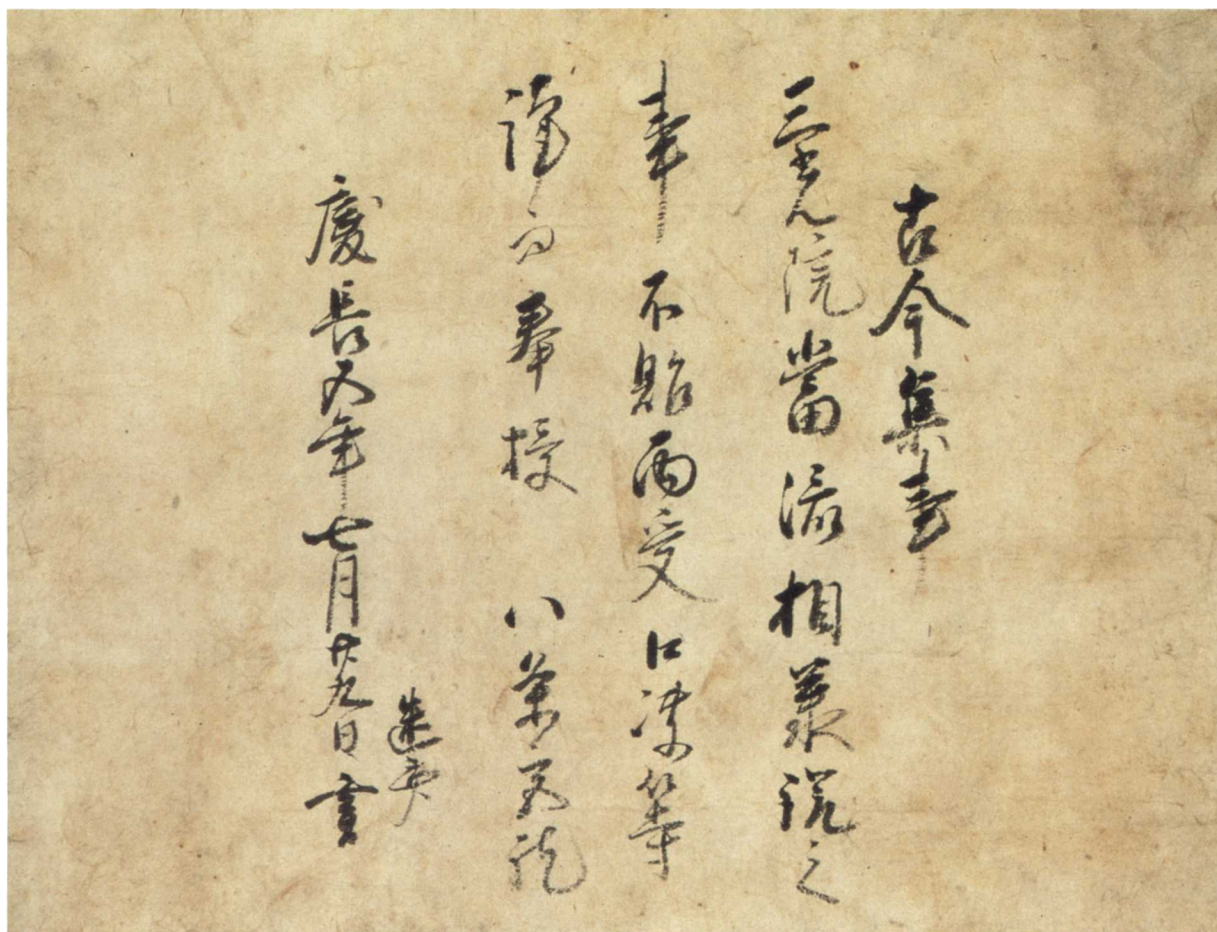 古今集事
三光院當流相承説之
事不貽面受口决等
謹而奉授 八条宮訖
幽斎
慶長五年七月廿九日 玄旨